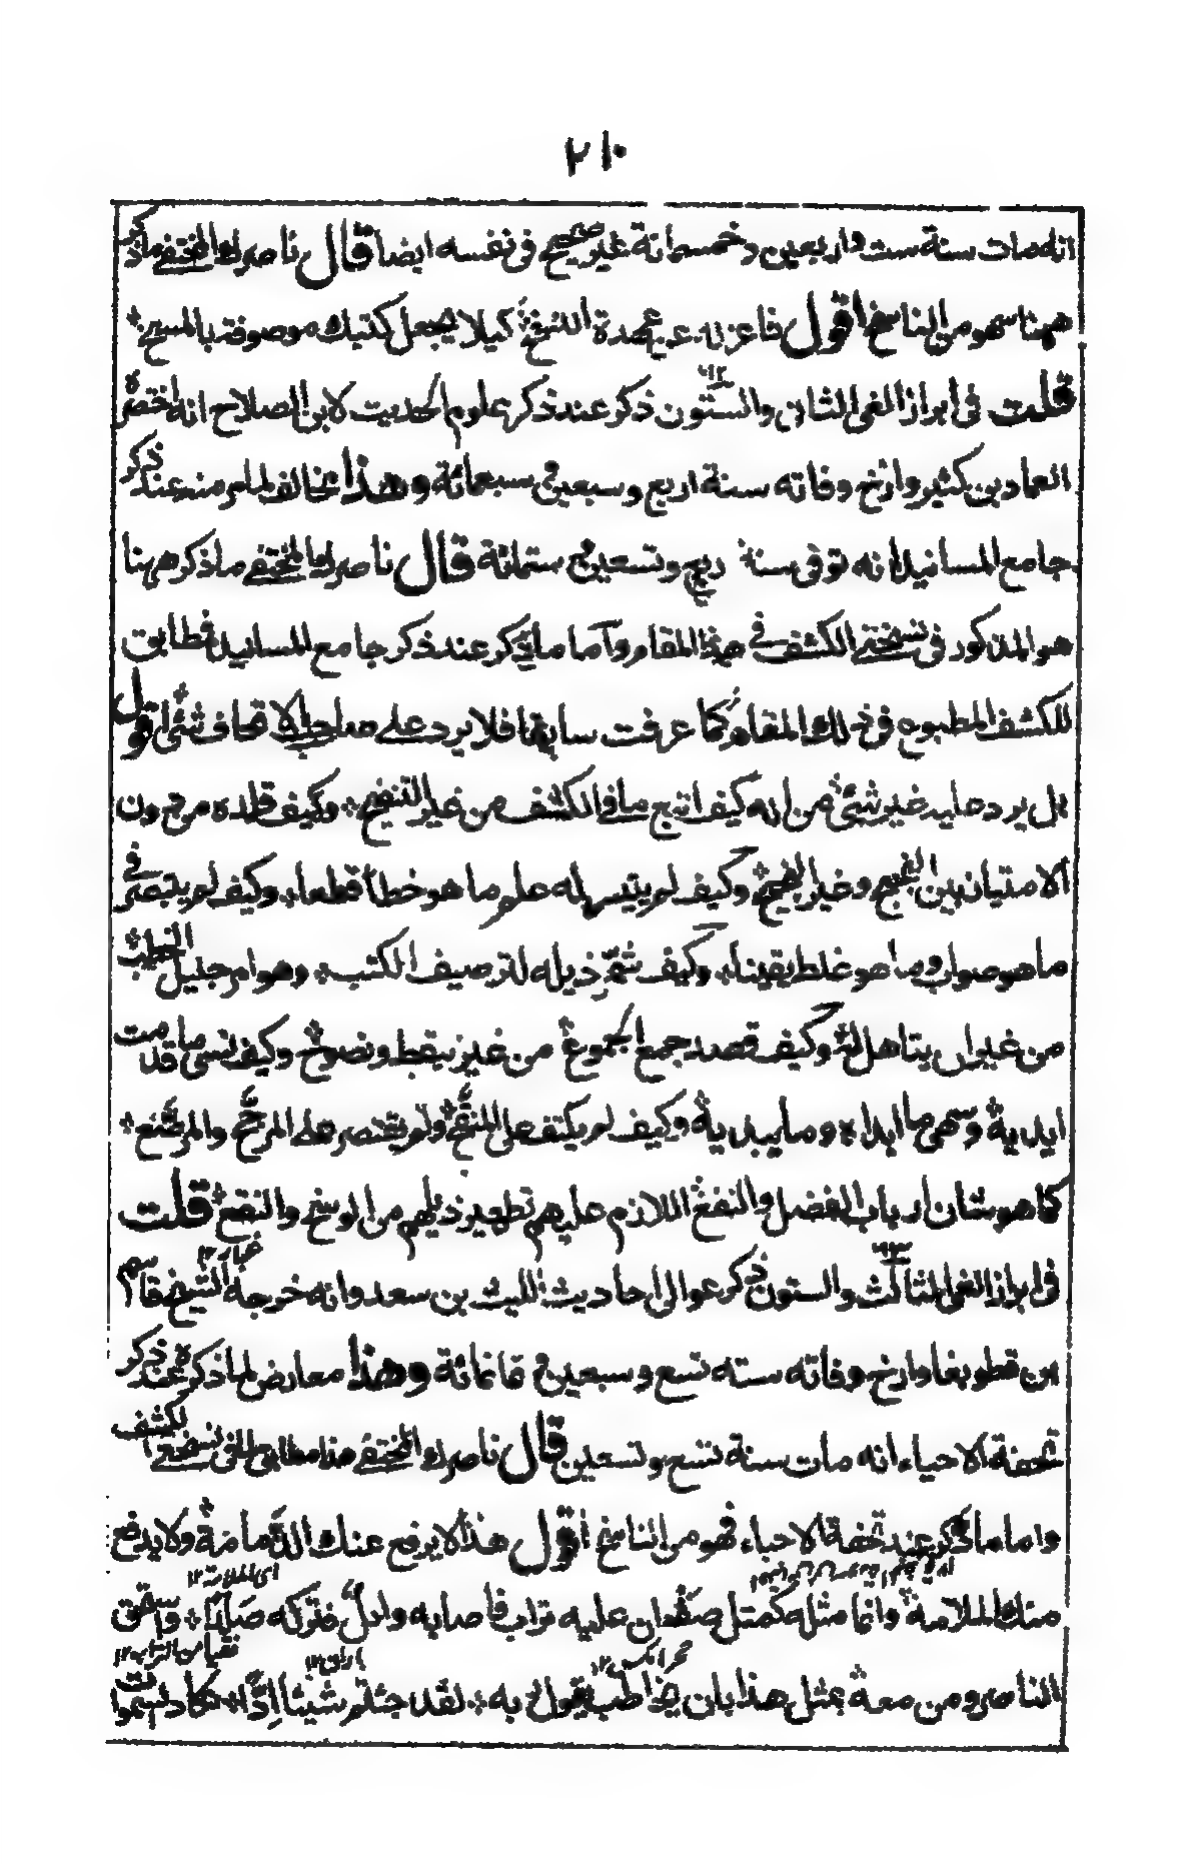 ٢١٠
انه مات سنة ست واربعين وخمسمائة غير صحيح فى نفسه ايضا قال ناصرك المختفے ماذكر
ههنا سهو من الناسخ اقول فاعزله عن عهدة النسخ كيلا يجعل كتبك موصوفة بالمسخ
قلت فى ابراز الغى الثانى والستون ذكر عند ذكر علوم الحديث لابن الصلاح انه اختصره
٦١٢
العماد بن كثير وارخ وفاته سنة اربع وسبعين وسبعمائة وهذا يخالف لما مر منه عند ذكر
جامع المسانيد انه توفى سنة ربع وتسعين ستمائة قال ناصرك المختفے ما ذكر ههنا
هو المذكور فى نسختے الكشف فے هذا المقام واما ما ذكر عند ذكر جامع المسانيد فطابق
للكشف المطبوع فى ذلك المقام كما عرفت سابقا فلا يرد على صاحب الاتحاف شئ اقول
بل يرد عليه غير شئ من انه كيف اتبع ما فے الكشف من غير التنقيح وكيف قلده من دون
الامتياز بين القبيح وغير القبيح وكيف لم يتيسر له علم ما هو خطأ قطعا وكيف لم يتبصر فے
ما هو صواب وما هو غلط يقينا وكيف شمّر ذيله لترصيف الكتب وهو امر جليل الخطب
من غير ان يتاهل له وكيف قصد جمع المجموع من غير تيقظ ونصوح وكيف نسى ما قدمت
ايديه وسهى ما ابداه وما يبديه وكيف لم يكتف على المنقّح ولم يقتصر على المرجّح والمرصّع
كما هو شان ارباب الفضل والنفع اللازم عليهم تطهير ذيلهم من الوسخ والنقع قلت
غبار ١٢
فى ابراز الغى الثالث والستون ذكر عوالى احاديث الليث بن سعد وانه خرجه الشيخ قاسم
بن قطلوبغا وارخ وفاته سنة تسع وسبعين ثمانمائة وهذا معارض لما ذكره عند ذكر
تحفة الاحياء انه مات سنة تسع وتسعين قال ناصرك المختفے هذا مطابق لما فى نسختے الكشف
واما ما ذكر عند تحفة الاحياء فهو من الناسخ اقول هذا لا يرفع عنك الدّمامة ولا يدفع
اى الملامة ١٢
منك الملامة وانما مثله كمثل صفوان عليه تراب فاصابه وابل فتركه صلدا واستحق
حجر املس ١٢
باران ١٢
نقيا من التراب ١٢
الناصر ومن معه بمثل هذا بان يخاطب بقول ربه لقد جئتم شيئا اِدًّا تكاد السموات